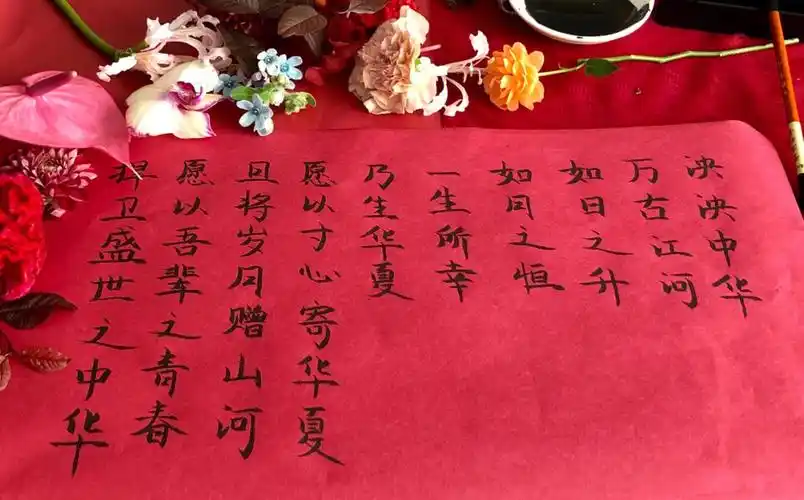 泱泱中华
万古江河
如日之升
如月之恒
一生所幸
乃生华夏
愿以寸心寄华夏
且将岁月赠山河
愿以吾辈之青春
捍卫盛世之中华